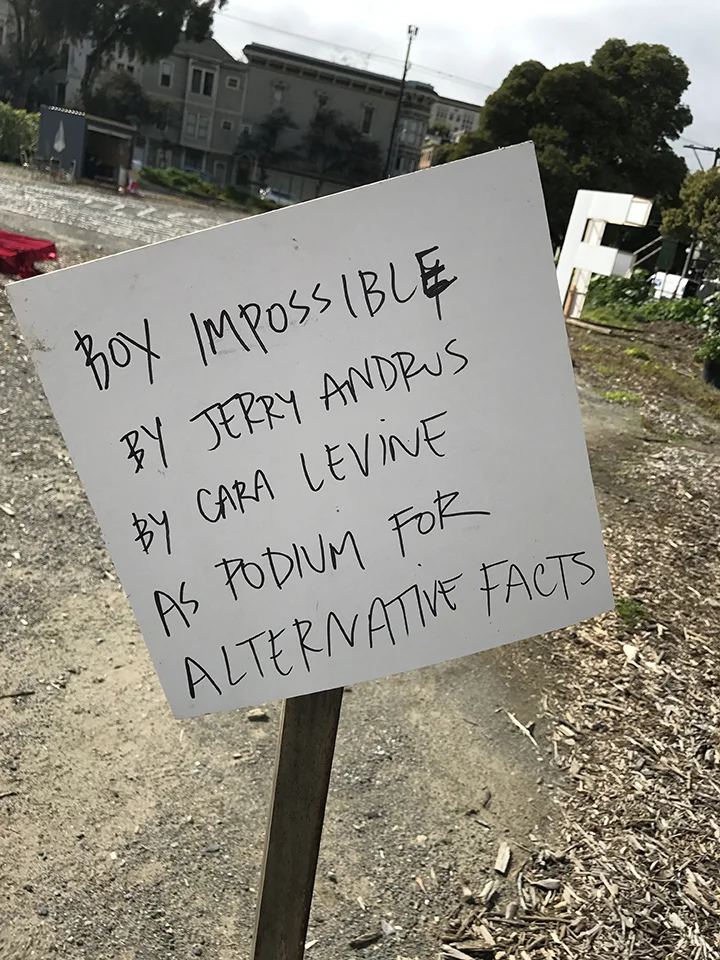 BOX IMPOSSIBLE
BY JERRY ANDRUS
BY CARA LEVINE
AS PODIUM FOR
ALTERNATIVE FACTS
F